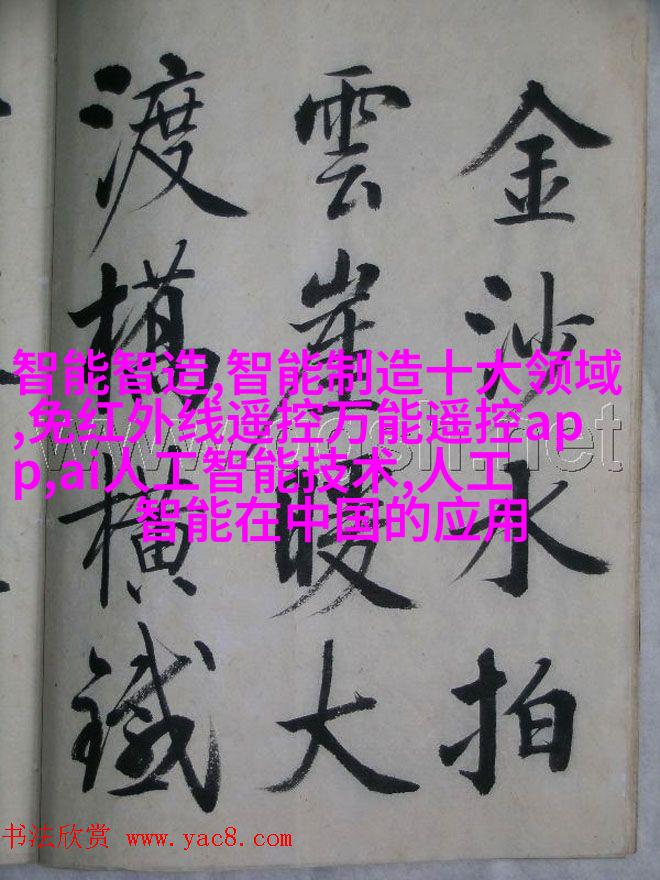 金沙水拍
雲崖暖大
渡橋横鐵
智能智造,智能制造十大领域
,免红外线遥控万能遥控ap
p,ai人工智能技术,人工
智能在中国的应用
书法欣赏 www.yac8.com